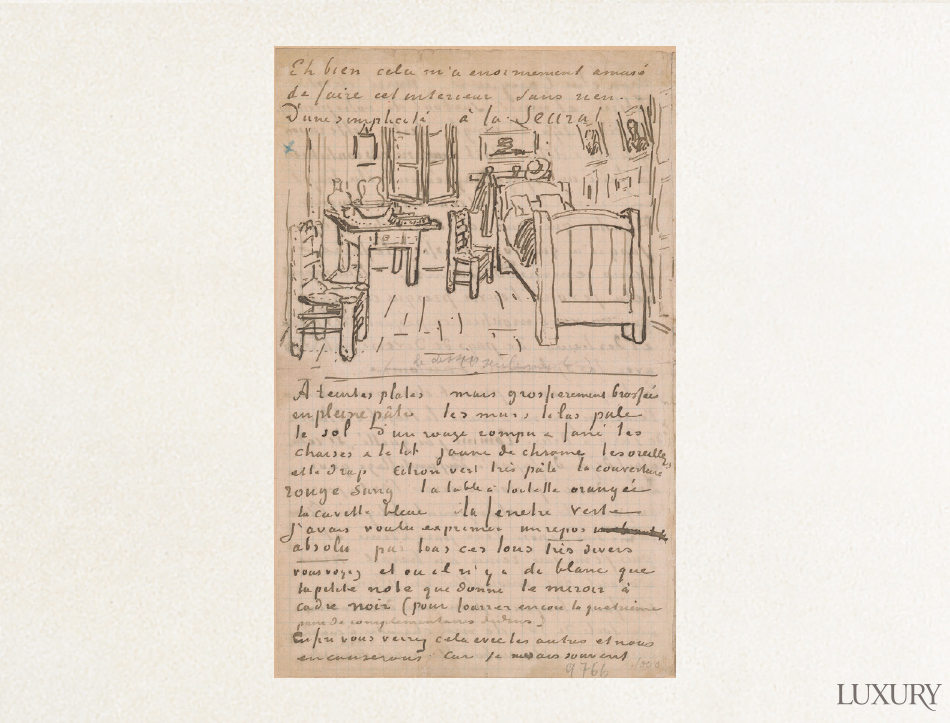 Eh bien cela m'a enormement amusé
de faire cet interieur sans rien.
D'une simplicité à la Seurat
A teintes plates mais grossierement brossées
en pleine pâte les murs lilas pale
le sol d'un rouge rompu & fané les
chaises & le lit jaune de chrome les oreillers
et le drap citron vert très pâle la couverture
rouge sang la table à toilette orangée
la cuvette bleue la fenetre verte
J'avais voulu exprimer un repos
absolu par tous ces tons très divers
vous voyez et ou il n'y a de blanc que
la petite note que donne le miroir à
cadre noir (pour fourrer encore la quatrième
paire de complementaires dedans)
Enfin vous verrez cela avec les autres et nous
en causerons car je ne sais souvent
9766
LUXURY